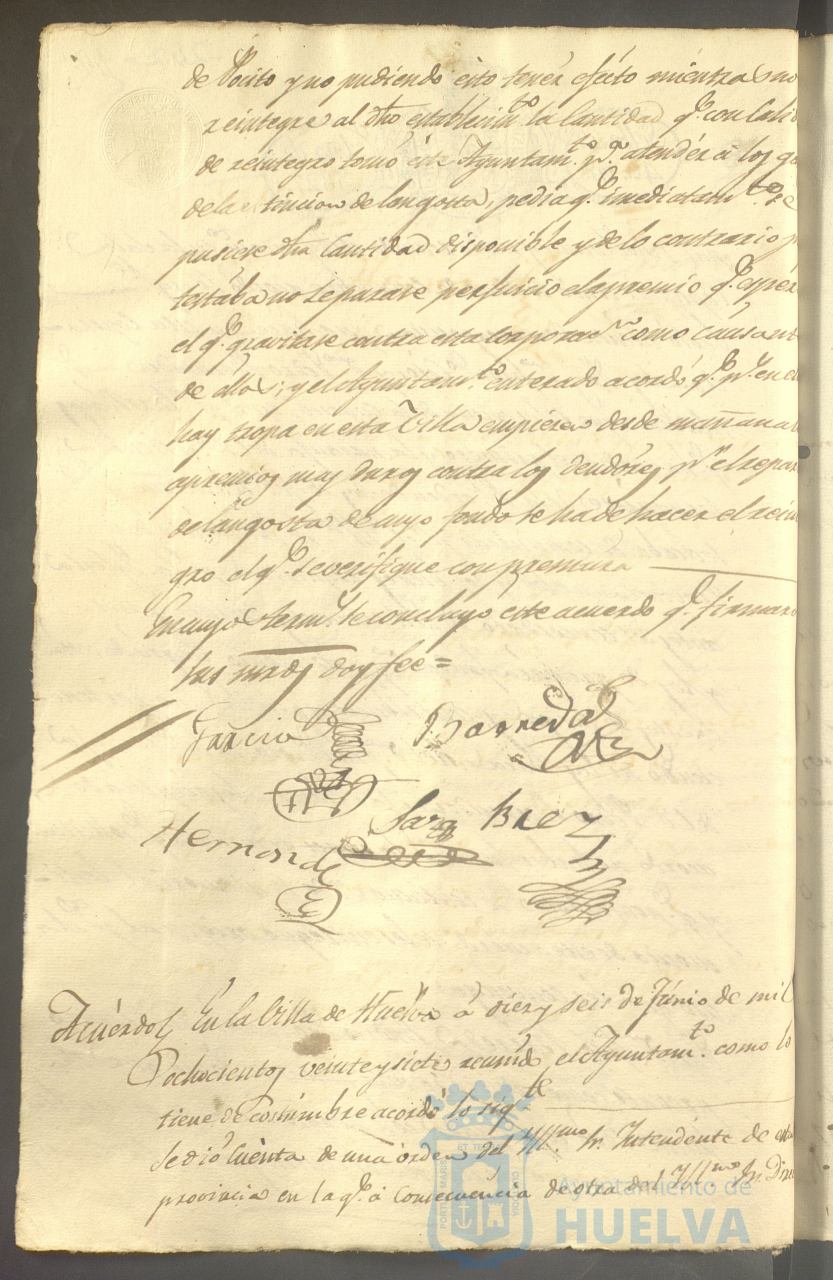 de Pocito y no pudiendo esto tener efecto mientras no
reintegre al dho establecimto. la Cantidad q.e con Calid
de reintegro tomó este Ayuntam.to p.a atender á los ga
de la estincion de langosta, pedia q.e imediatam.te se
pusiese dha Cantidad disponible y de lo contrario p
testaba no le parase perjuicio el apremio q.e
el q.e gravitase contra esta Corporac.n como causant
de ellos; y el Ayuntam.to enterado acordó q.e p.r
hay tropa en esta Villa empiezen desde mañana
apremios mas duros contra los deudores p.r el repar
de langosta de cuyo fondo se ha de hacer el rein
gro el q.e se verifique con premura
En cuyos term.s se concluyó este acuerdo q.e firmaro
sus mrds doy fee =
Garcia Barreda
Sara Baez
Hernandz
Acuerdo En la Villa de Huelva á diez y seis de Junio de mil
ochocientos veinte y siete reunido el Ayuntam.to como lo
tiene de costumbre acordó lo sig.te
Se dió Cuenta de una orden del Ill.mo Sr. Intendente de esta
provincia en la q.e á Consecuencia de otra del Ill.mo Sr. Dire
Ayuntamiento de
HUELVA